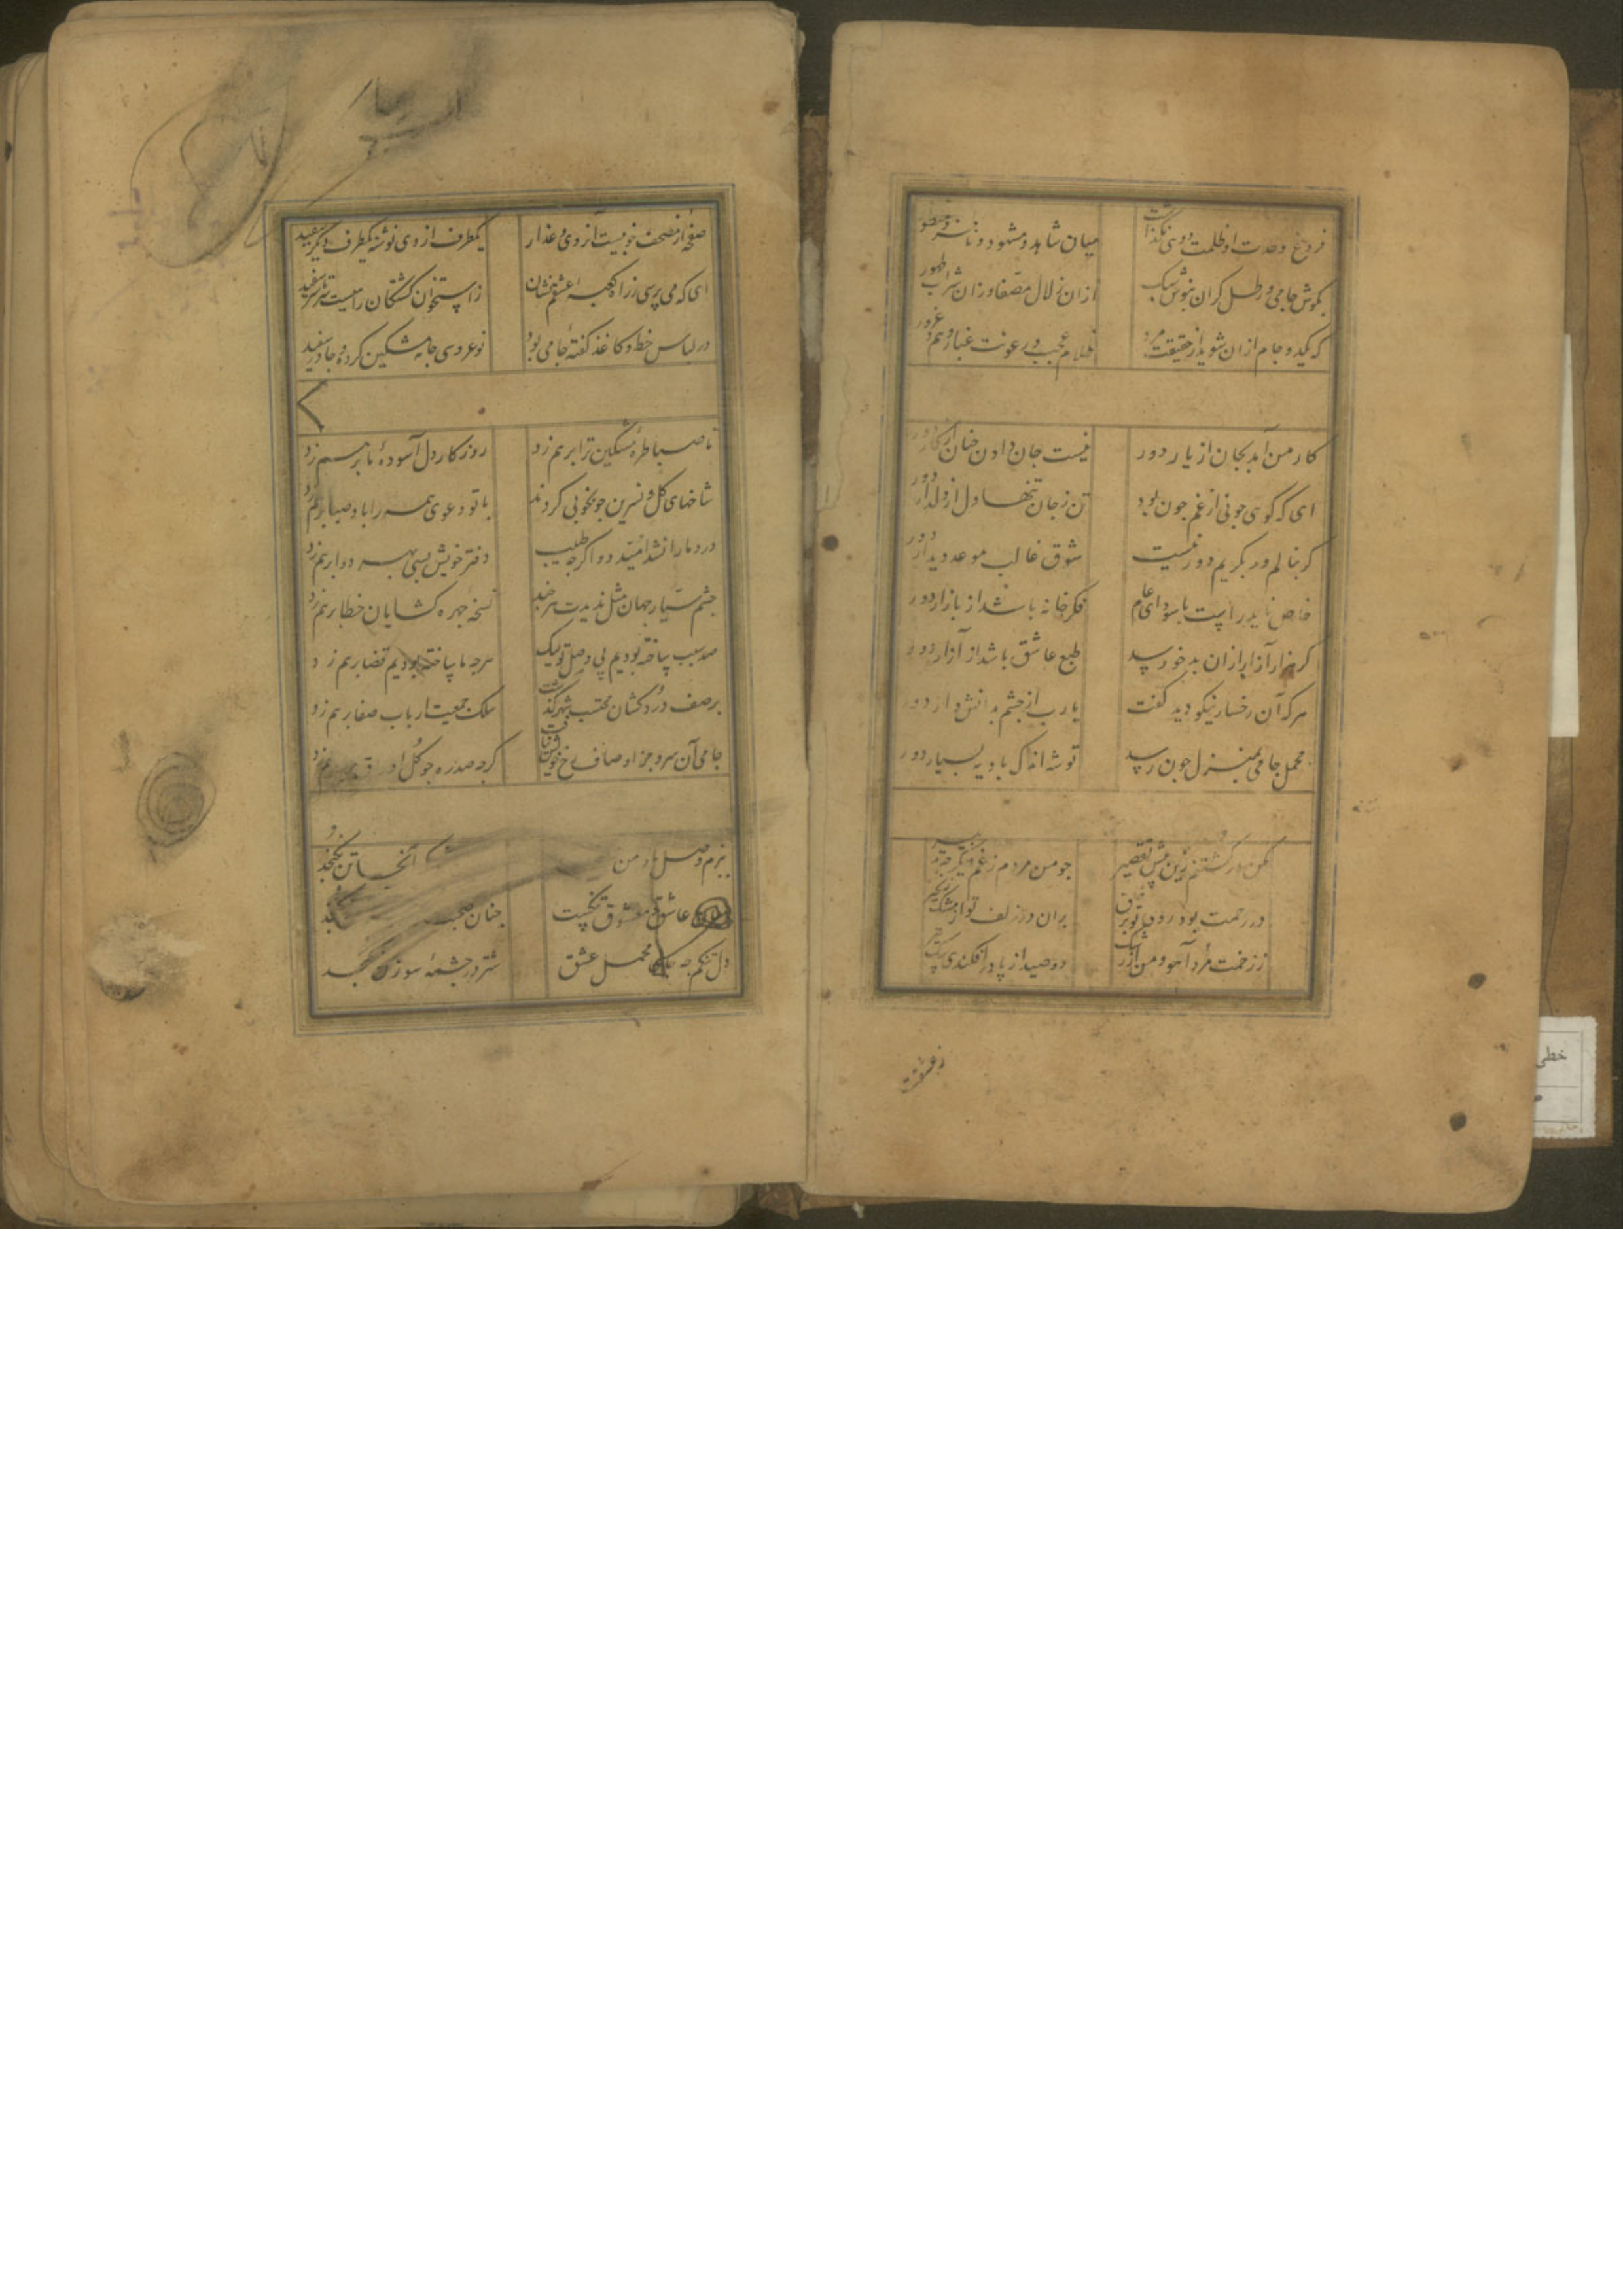 فروغ وحدت او ظلمت دویی نگذاشت میان شاهد و مشهود و ناظر و منظور
بکوش جامی و رطل کران بنوش سبک ازان زلال مصفا وزان شراب طهور
که یکدو جام ازان شوید از حقیقت مرد ظلام عجب و رعونت غبار وهم و غرور
کار من آمد بجان از یار دور نیست جان دادن جنان از کار دور
ای که کوی جونی از غم جون بود تن ز جان تنها و دل از دلدار دور
کر بنالم ور بکریم دور نیست شوق غالب موعد دیدار دور
خاص ناید راست با سودای عام فکر خانه باشد از بازار دور
کر هزار آزار ازان بدخو رسد طبع عاشق باشد از آزار دور
هر که آن رخسار نیکو دید کفت یارب از جشم بدانش دار دور
محمل جامی بمنزل جون رسد توشه اندک بادیه بسیار دور
مکن در کشتنم زین بیش تقصیر جو من مردم ز غم دیکر جه تدبیر
در رحمت بود روی تو بر خلق بران در زلف تو از مشک زنجیر
ز زخمت مرد آهو و من از رشک دو صید از پا در افکندی بیک تیر
ز عشقت
صفحه از مصحف خوبیست آن روی و عذار یکطرف از وی نوشته یکطرف دیکر سفید
ای که می پرسی ز راه کعبه عشقم نشان ز استخوان کشتکان راهیست سرتاسر سفید
در لباس خط و کاغذ کفته جامی بود نوعروسی جامه مشکین کرده و جادر سفید
تا صبا طره مشکین ترا برهم زد روزکار دل آسوده ما برهم زد
شاخهای کل و نسرین جو بخوبی کردند با تو دعوی همه را باد صبا برهم زد
درد ما را نشد امید دوا کرجه طبیب دفتر خویش بسی بهر دوا برهم زد
جشم سیار جهان مثل ندیدت هرجند نسخه جهره کشایان خطا برهم زد
صد سبب ساخته بودیم پی وصل تو لیک هرجه ما ساخته بودیم قضا برهم زد
بر صف دردکشان محتسب شهر کذشت سلک جمعیت ارباب صفا برهم زد
جامی آن سرو جز اوصاف رخ خویش نیافت کرجه صد ره جو کل اوراق برهم زد
بزم وصل یار من آنجا تن نکنجد
عاشق و معشوق تنکیست جنان
دل تنکم جه محمل عشق شتر در جشمه سوزن نکنجد
خطی